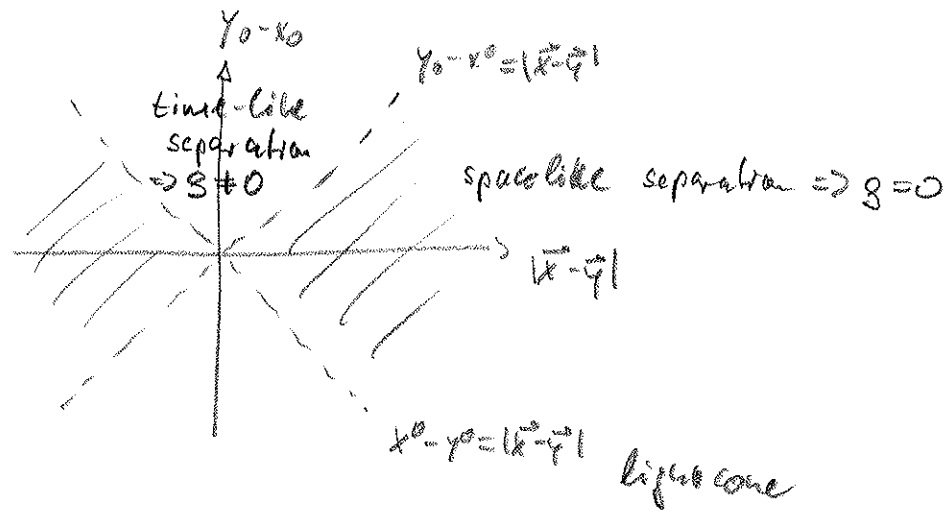 y₀-x₀
y₀-x⁰=|x⃗-y⃗|
time-like
separation
=> ρ ≠ 0
spacelike separation => ρ = 0
|x⃗-y⃗|
x⁰-y⁰=|x⃗-y⃗|
light cone